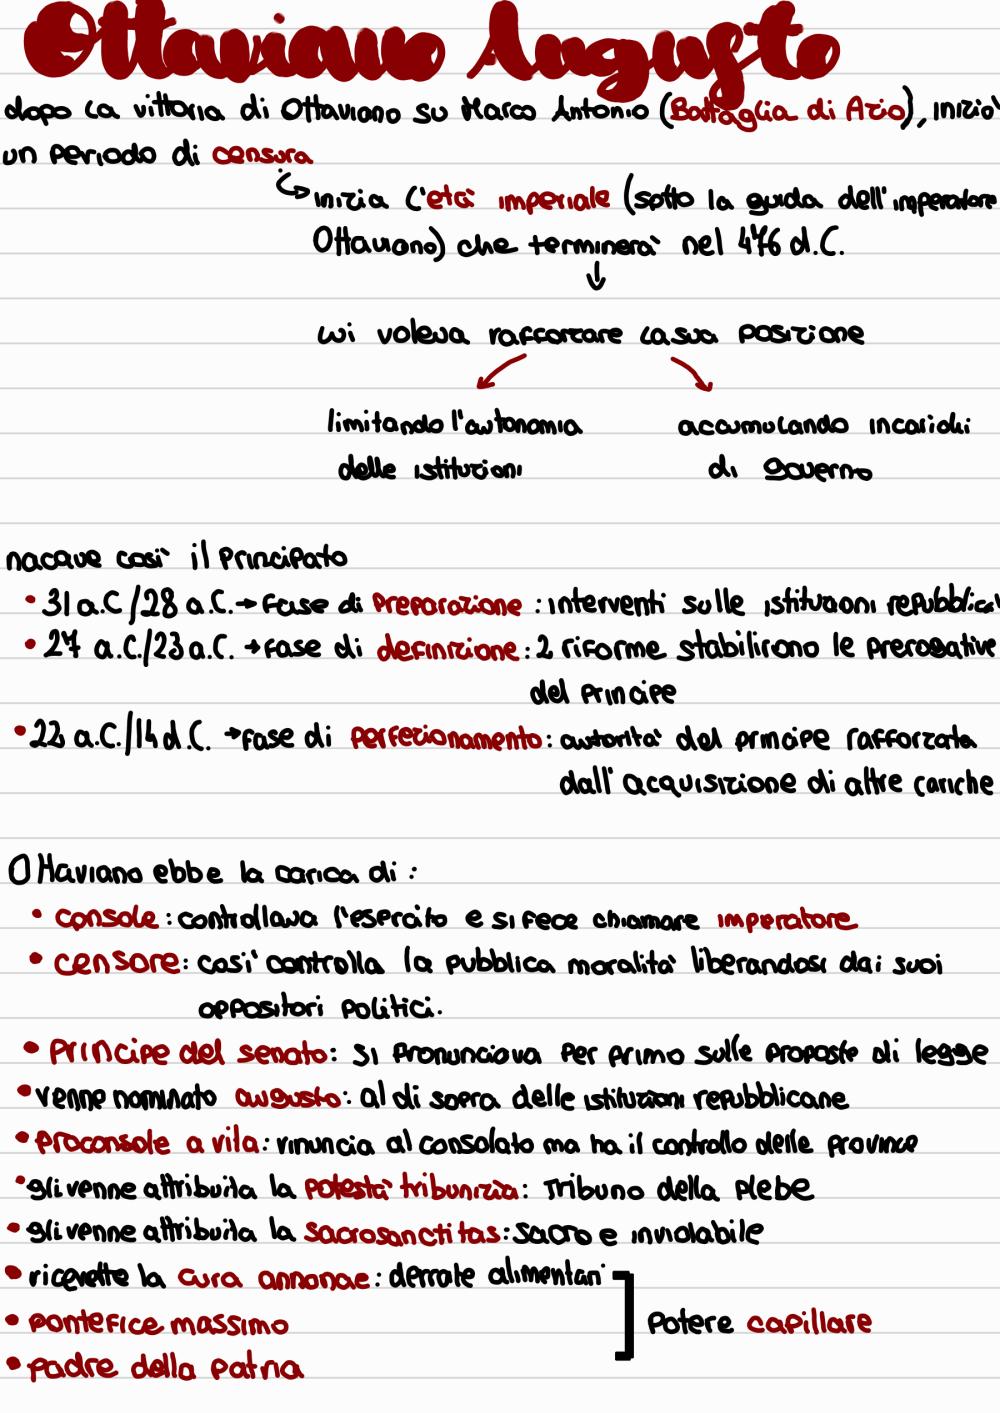 Ottaviano Augusto
dopo la vittoria di Ottaviano su Marco Antonio (Battaglia di Azio), iniziò
un periodo di censura
inizia l'età imperiale (sotto la guida dell'imperatore
Ottaviano) che terminerà nel 476 d.C.
lui voleva rafforzare la sua posizione
limitando l'autonomia accumulando incarichi
delle istituzioni di governo
nacque così il principato
• 31 a.C/28 a.C. → fase di preparazione: interventi sulle istituzioni
• 27 a.C./23 a.C. → fase di definizione: 2 riforme stabilirono le prerogative
del principe
• 22 a.C./14 d.C. → fase di perfezionamento: autorità del principe rafforzata
dall'acquisizione di altre cariche
Ottaviano ebbe la carica di:
• console: controllava l'esercito e si fece chiamare imperatore
• censore: così controlla la pubblica moralità liberandosi dai suoi
oppositori politici.
• principe del senato: si pronunciava per primo sulle proposte di legge
• venne nominato augusto: al di sopra delle istituzioni repubblicane
• proconsole a vita: rinuncia al consolato ma ha il controllo delle province
• gli venne attribuita la potestà tribunizia: tribuno della plebe
• gli venne attribuita la sacrosanctitas: sacro e inviolabile
• ricevette la cura annonae: derrate alimentari
• pontefice massimo potere capillare
• padre della patria